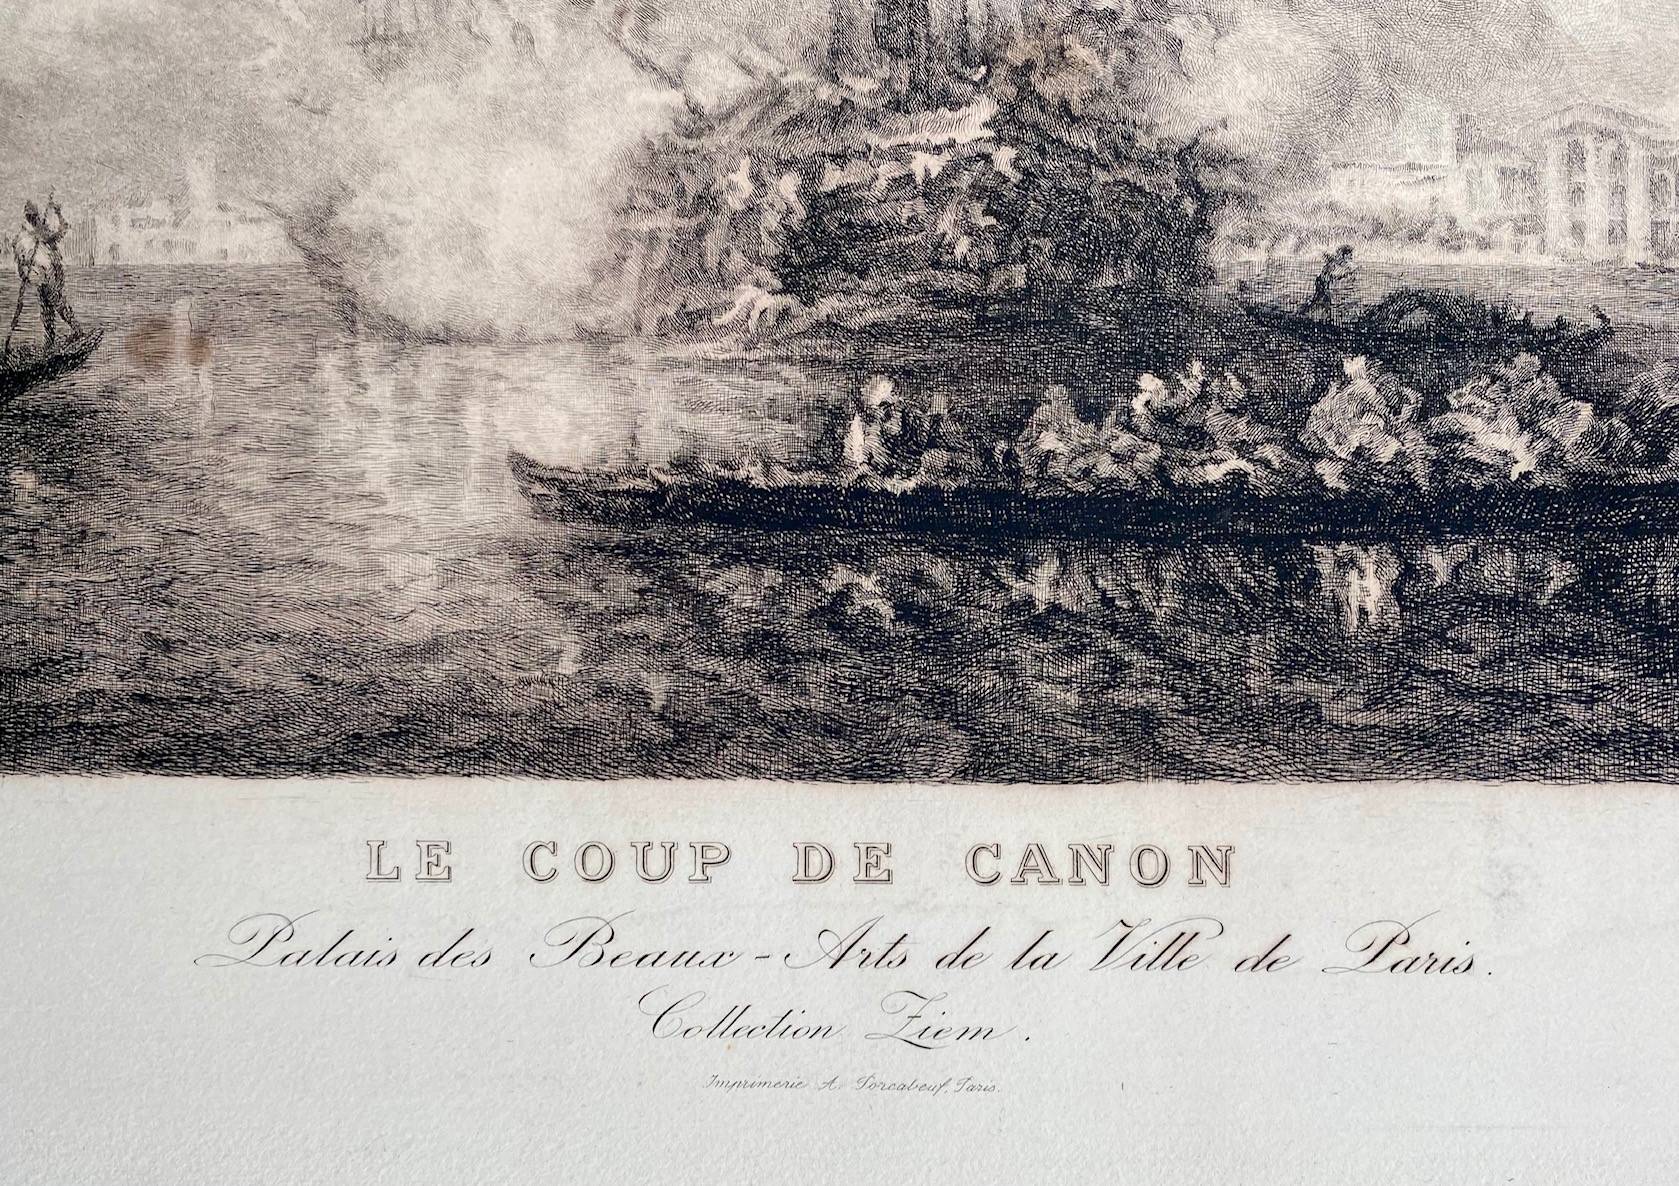 LE COUP DE CANON
Palais des Beaux-Arts de la Ville de Paris.
Collection Ziem.
Imprimerie A. Porcabeuf, Paris.